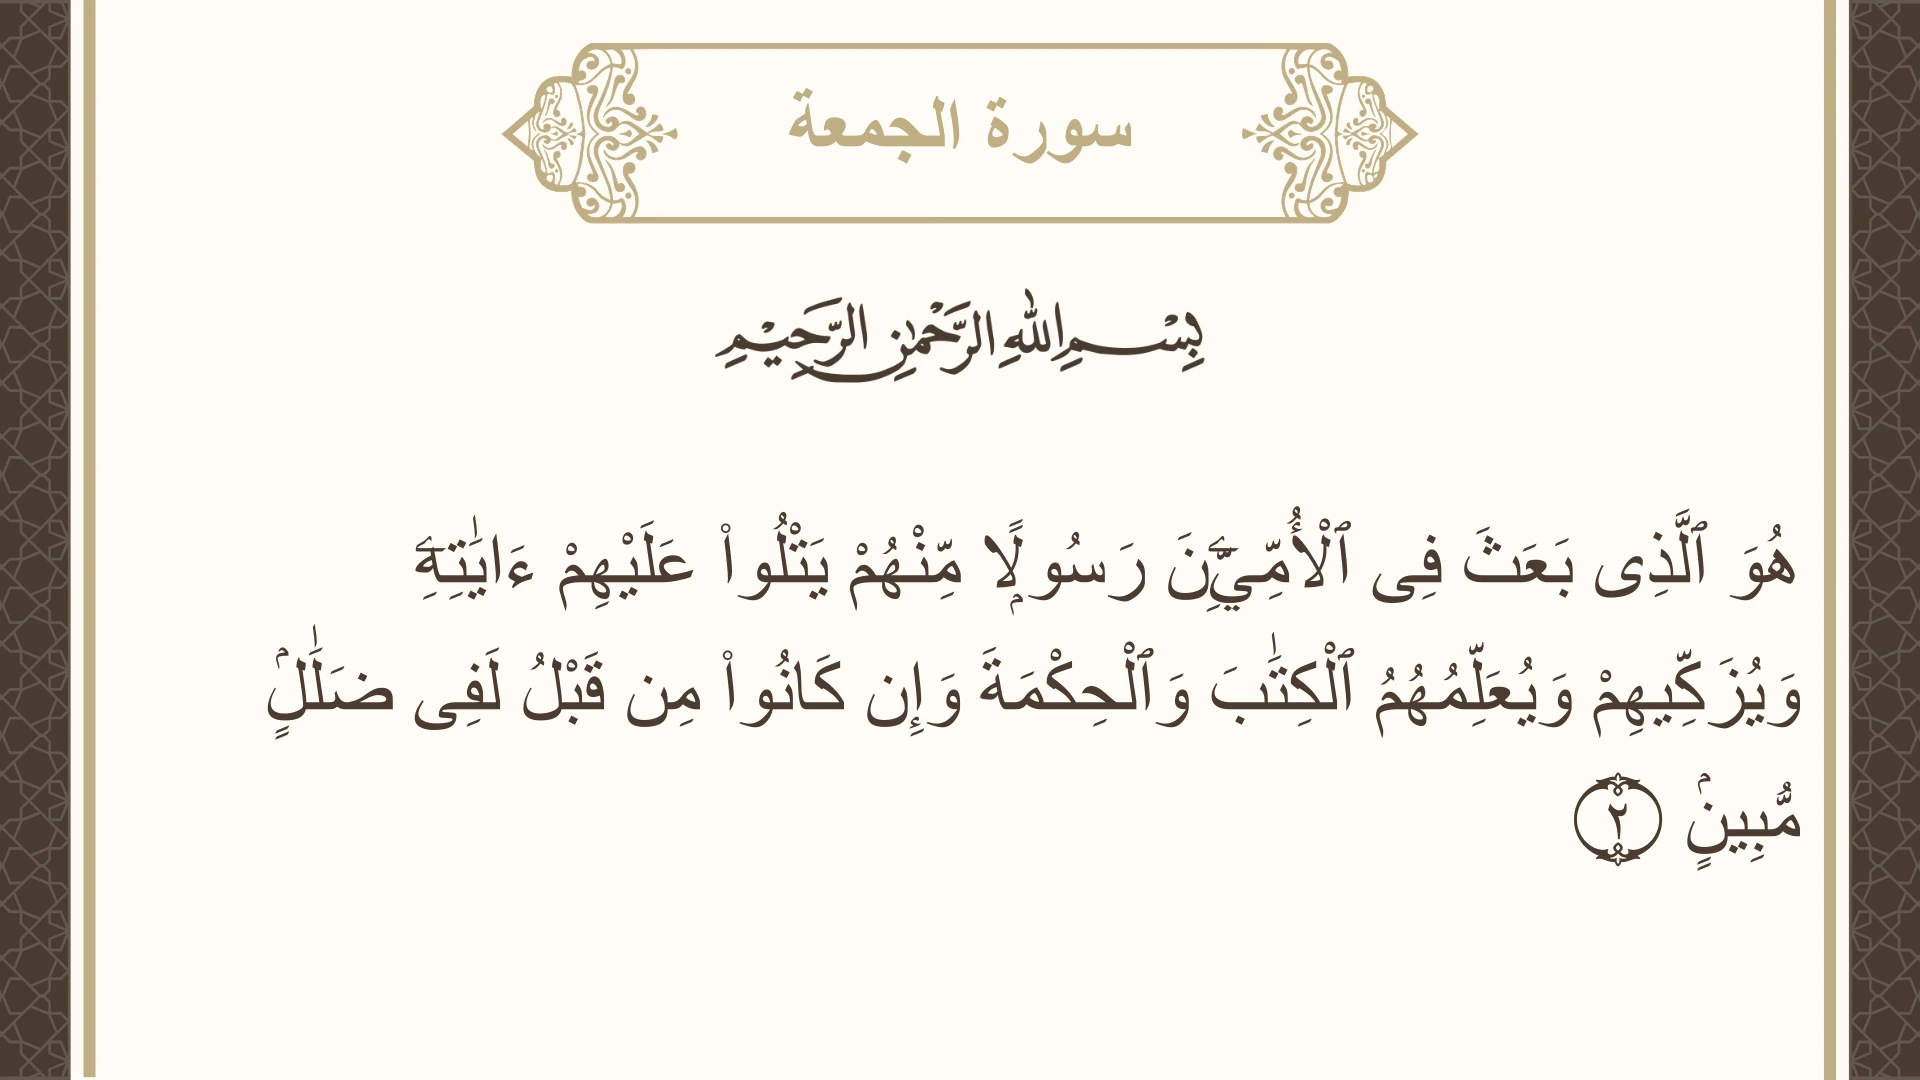 سورة الجمعة
بِسْمِ اللهِ الرَّحْمٰنِ الرَّحِيْمِ
هُوَ ٱلَّذِى بَعَثَ فِى ٱلْأُمِّيِّۦنَ رَسُولًۭا مِّنْهُمْ يَتْلُوا۟ عَلَيْهِمْ ءَايَـٰتِهِۦ
وَيُزَكِّيهِمْ وَيُعَلِّمُهُمُ ٱلْكِتَـٰبَ وَٱلْحِكْمَةَ وَإِن كَانُوا۟ مِن قَبْلُ لَفِى ضَلَـٰلٍۢ
مُّبِينٍۢ ٢